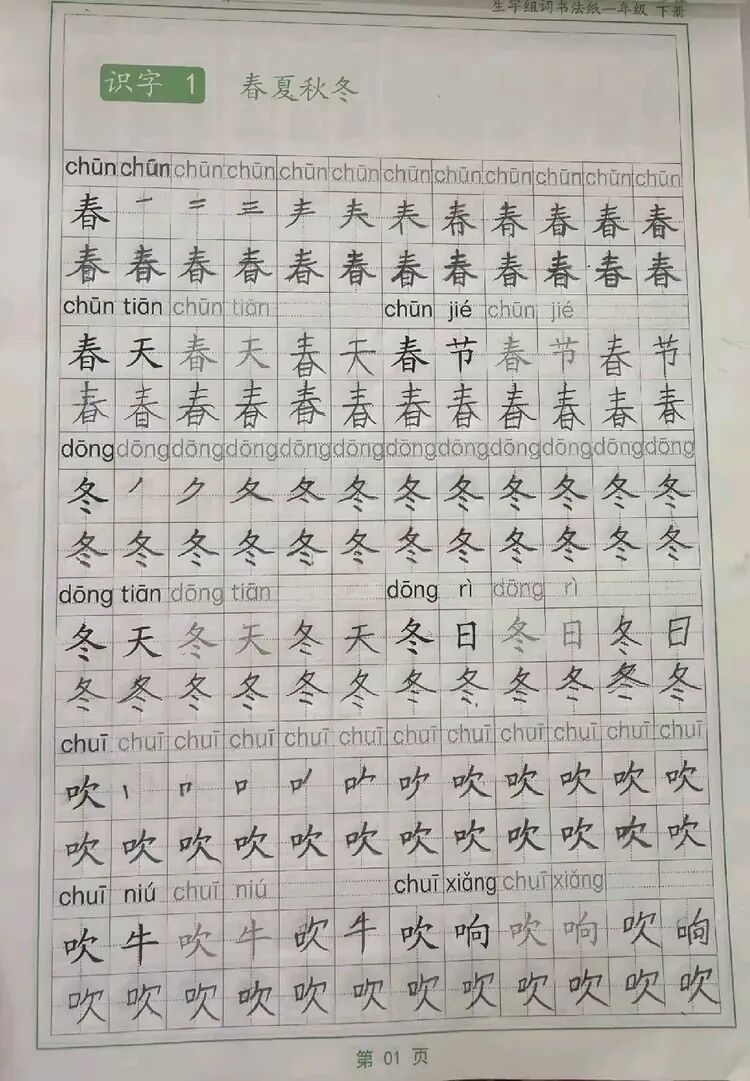 生字组词书法纸一年级 下册
识字 1 春夏秋冬
chūn chūn chūn chūn chūn chūn chūn chūn chūn chūn chūn chūn
春 一 二 三 𡗗 春 春 春 春 春
春 春 春 春 春 春 春 春 春 春 春 春
chūn tiān chūn tiān chūn jié chūn jié
春 天 春 天 春 天 春 节 春 节 春 节
春 春 春 春 春 春 春 春 春 春 春 春
dōng dōng dōng dōng dōng dōng dōng dōng dōng dōng dōng dōng
冬 丿 ク 夂 冬 冬 冬 冬 冬 冬 冬 冬
冬 冬 冬 冬 冬 冬 冬 冬 冬 冬 冬 冬
dōng tiān dōng tiān dōng rì dōng rì
冬 天 冬 天 冬 天 冬 日 冬 日 冬 日
冬 冬 冬 冬 冬 冬 冬 冬 冬 冬 冬 冬
chuī chuī chuī chuī chuī chuī chuī chuī chuī chuī chuī chuī
吹 丨 口 吹 吹 吹 吹 吹
吹 吹 吹 吹 吹 吹 吹 吹 吹 吹 吹 吹
chuī niú chuī niú chuī xiǎng chuī xiǎng
吹 牛 吹 牛 吹 牛 吹 响 吹 响 吹 响
吹 吹 吹 吹 吹 吹 吹 吹 吹 吹 吹 吹
第 01 页